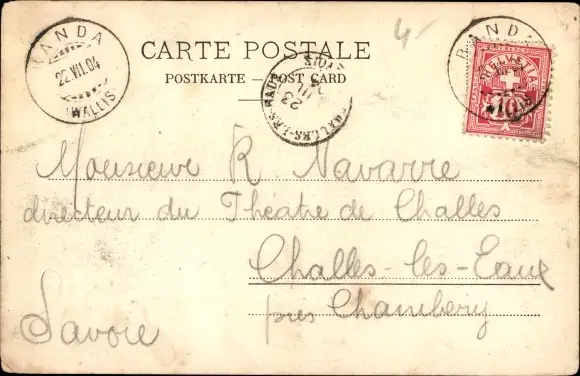 4-
CARTE POSTALE
POSTKARTE — POST CARD
RANDA
22.VII.04
(WALLIS)
RANDA
HELVETIA
10
CHALLES-LES-EAUX
23
Monsieur R. Navarre
directeur du Théatre de Challes
Challes-les-Eaux
près Chambéry
Savoie